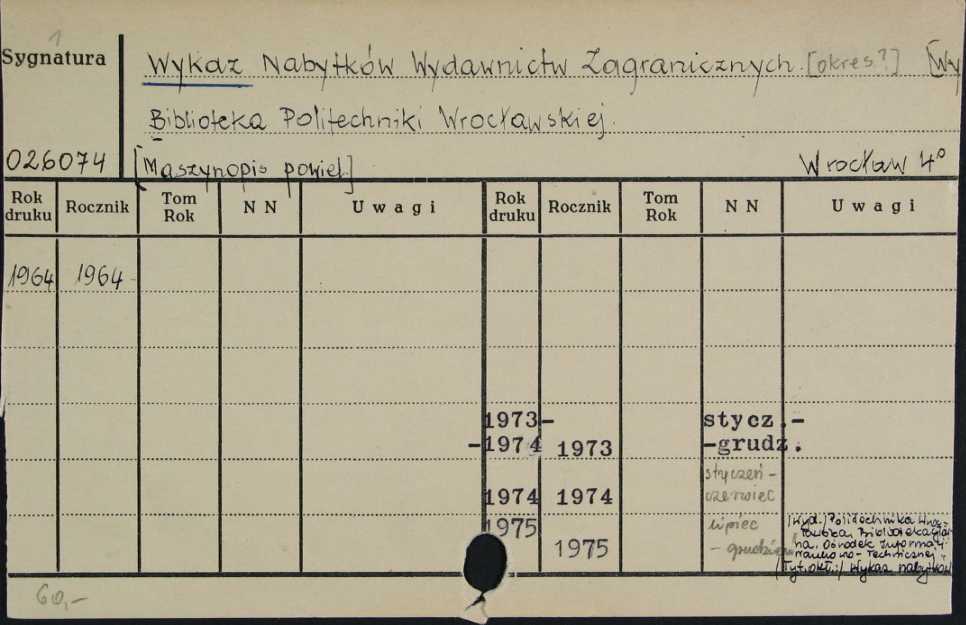 1
Sygnatura
Wykaz Nabytków Wydawnictw Zagranicznych. [okres?] [Wy
Biblioteka Politechniki Wrocławskiej.
026074 [Maszynopis powiel.] Wrocław 4°
Rok druku Rocznik Tom Rok N N Uwagi Rok druku Rocznik Tom Rok N N Uwagi
1964 1964
1973- stycz.-
-1974 1973 -grudz.
styczeń -
1974 1974 czerwiec
1975 lipiec
1975 - grudzień
[Wyd.] Politechnika Wroc-
Biblioteka
na. Ośrodek Informacji
Naukowo-Technicznej.
[Tyt. okł.:] Wykaz nabytków
60,-